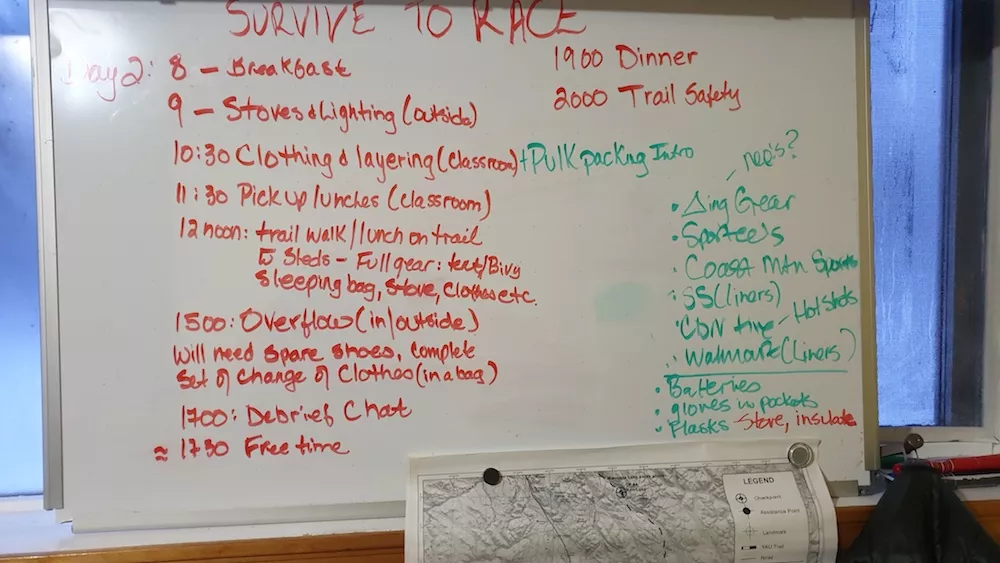 SURVIVE TO RACE
Day 2: 8 – Breakfast
9 – Stoves & Lighting (outside)
10:30 Clothing & layering (classroom) + Pulk packing Intro
11:30 Pick up lunches (classroom)
12 noon: trail walk/lunch on trail
Sleds – Full gear: tent/Bivy
Sleeping bag, stove, Clothes etc.
1500: Overflow (in/outside)
Will need spare shoes, complete
Set of change of Clothes (in a bag)
1700: Debrief Chat
≈ 1730 Free time
1900 Dinner
2000 Trail Safety
Gear
• Sportees
• Coast Mtn Sports
• SS (liners)
• CDN tire – Hotshots
• Walmart (Liners)
• Batteries
• gloves in pockets
• Flasks Store, insulate
LEGEND
Checkpoint
Assistance Point
Landmark
Trail